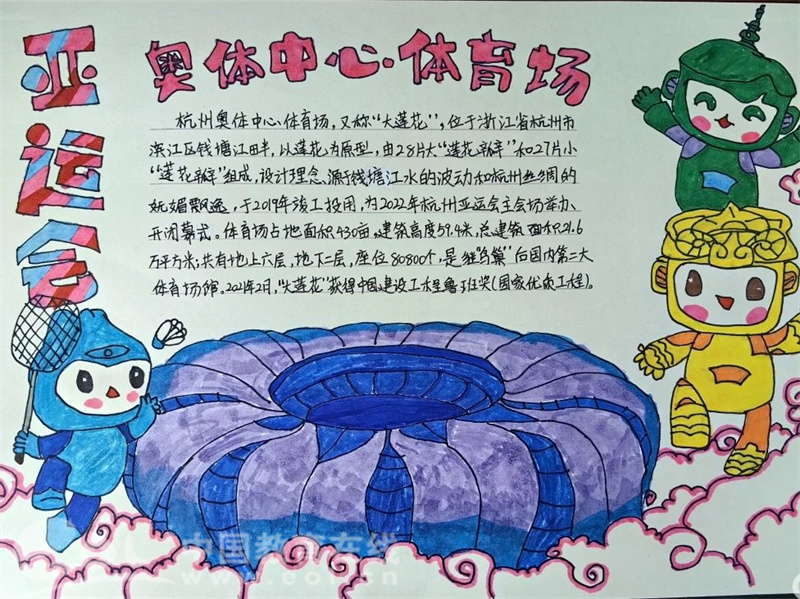 亚运会
奥体中心·体育场
杭州奥体中心体育场，又称“大莲花”，位于浙江省杭州市
滨江区钱塘江畔，以莲花为原型，由28片大“莲花瓣”和27片小
“莲花瓣”组成，设计理念源于钱塘江水的波动和杭州丝绸的
妩媚飘逸，于2019年竣工投用，为2022年杭州亚运会主会场举办、
开闭幕式。体育场占地面积430亩，建筑高度59.4米，总建筑面积21.6
万平方米，共有地上六层，地下二层，座位80800个，是继“鸟巢”后国内第二大
体育场馆。2021年2月，“大莲花”获得中国建设工程鲁班奖（国家优质工程）。
中国教育在线
www.eol.cn